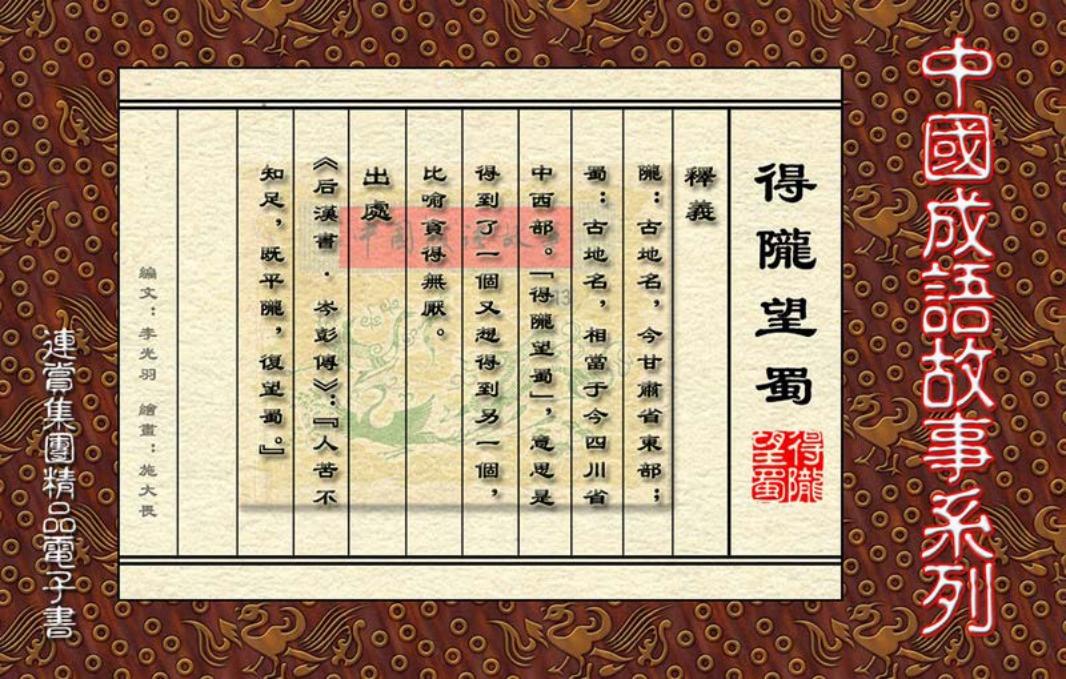 中國成語故事系列
得隴望蜀
得隴
望蜀
釋義
隴：古地名，今甘肅省東部；
蜀：古地名，相當于今四川省
中西部。「得隴望蜀」，意思是
得到了一個又想得到另一個，
比喻貪得無厭。
出處
《后漢書．岑彭傳》：『人苦不
知足，既平隴，復望蜀。』
編文：李光羽 繪畫：施大畏
連賞集團精品電子書